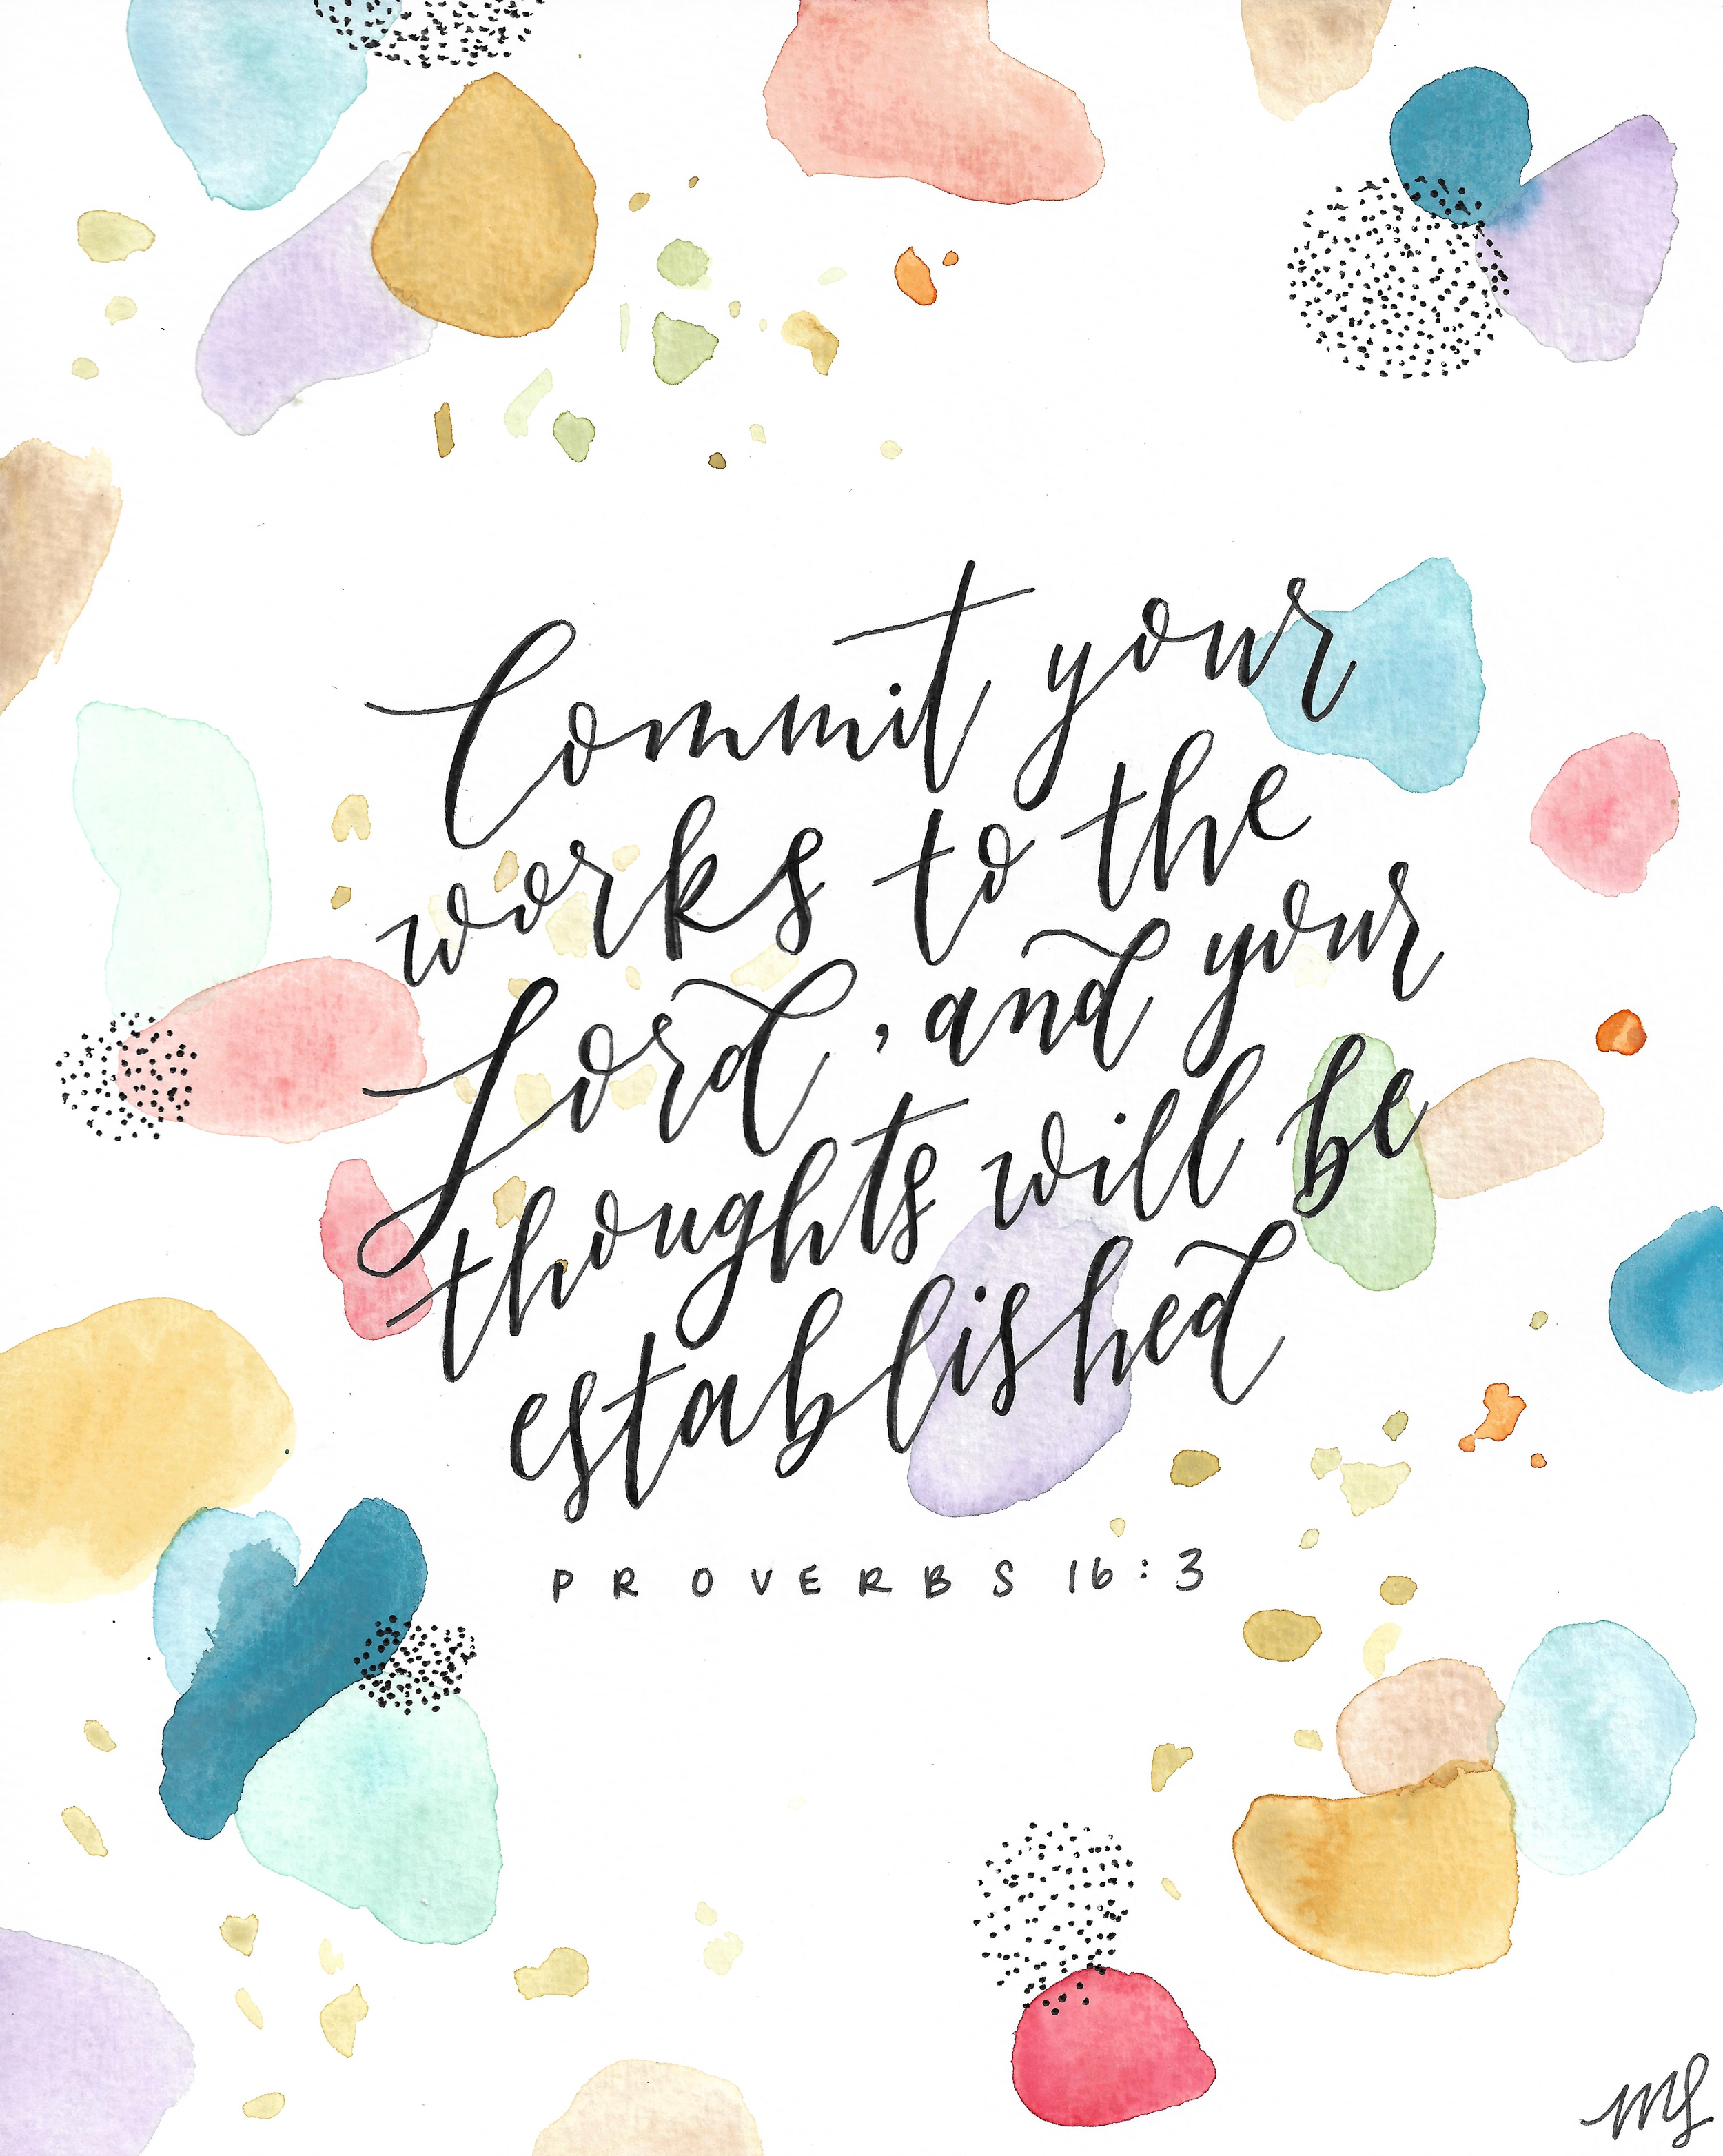 Commit your
works to the
Lord, and your
thoughts will be
established
PROVERBS 16:3
ms